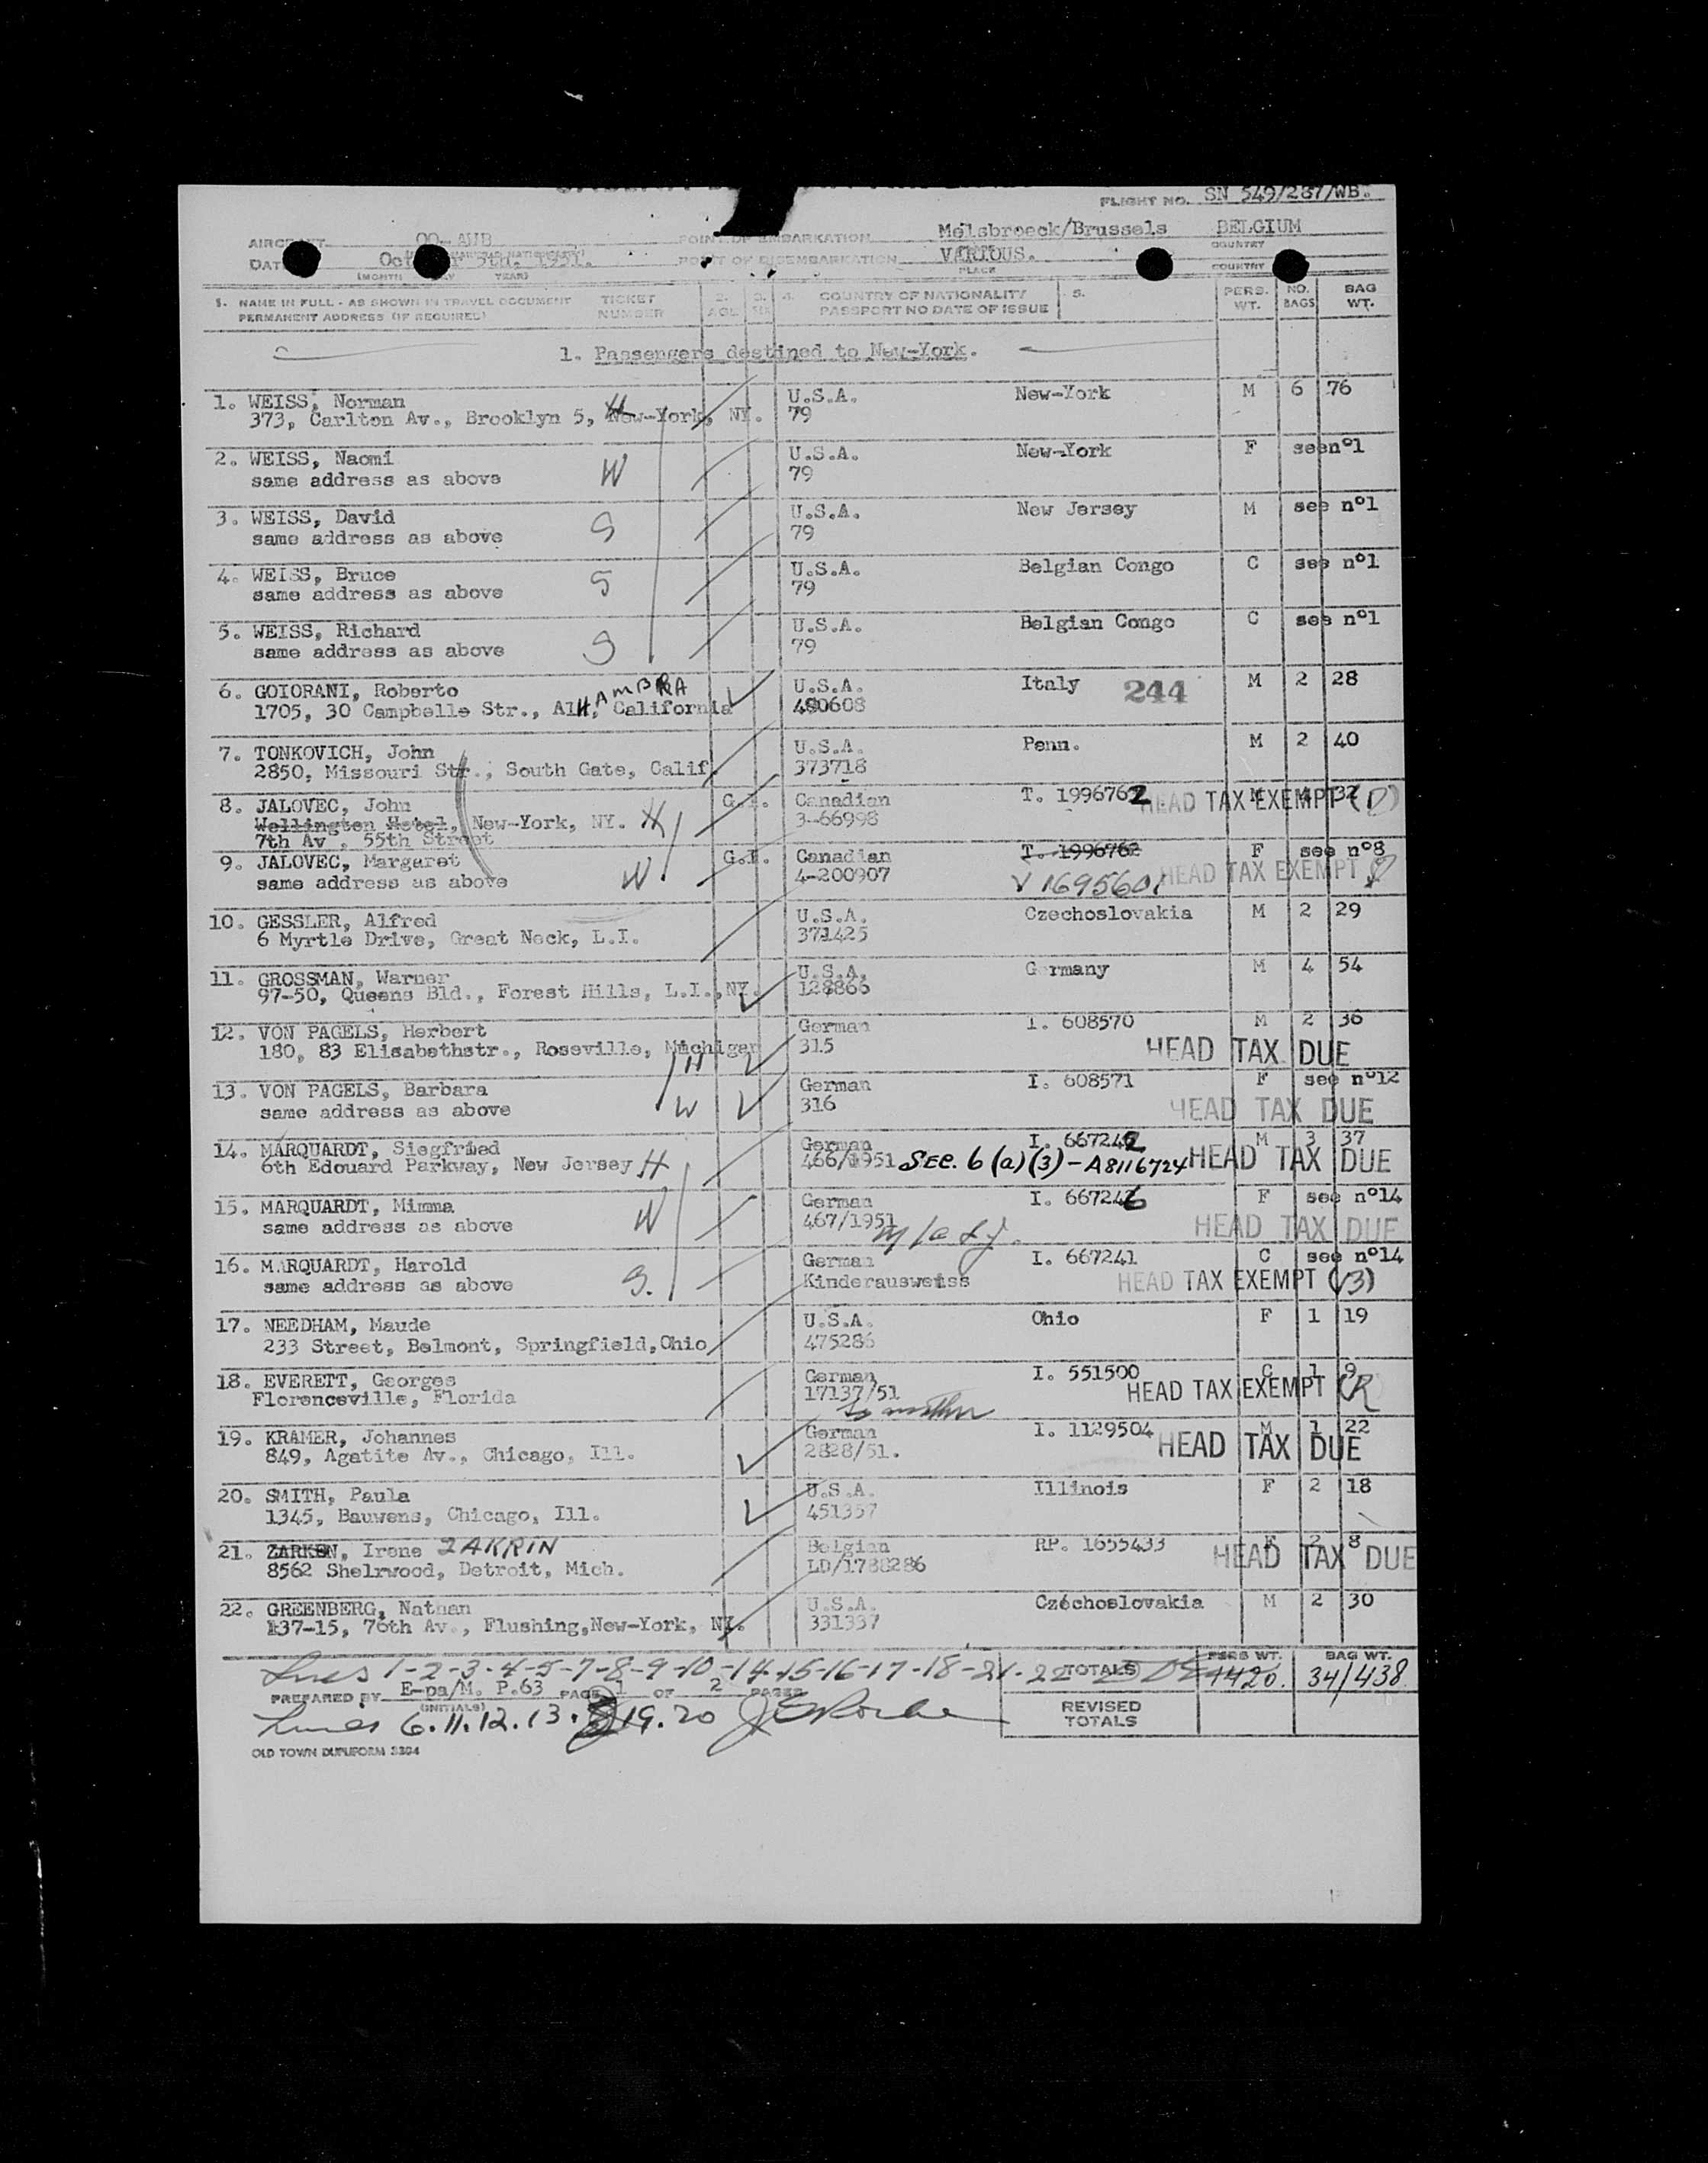 FLIGHT NO. SN 549/287/WB.
AIRCRAFT OO-AUB POINT OF EMBARKATION Melsbroeck/Brussels BELGIUM
PLACE COUNTRY
DATE 1951. POINT OF DISEMBARKATION VARIOUS.
(MONTH YEAR) PLACE COUNTRY
1. NAME IN FULL - AS SHOWN IN TRAVEL DOCUMENT TICKET 2. 3. 4. COUNTRY OF NATIONALITY 5. PERS. NO. BAG
PERMANENT ADDRESS (IF REQUIRED) NUMBER AGE SEX PASSPORT NO DATE OF ISSUE WT. BAGS WT.
1. Passengers destined to New-York.
1. WEISS, Norman H U.S.A. New-York M 6 76
373, Carlton Av., Brooklyn 5, New-York, NY. 79
2. WEISS, Naomi U.S.A. New-York F see nº1
same address as above W 79
3. WEISS, David U.S.A. New Jersey M see nº1
same address as above S 79
4. WEISS, Bruce U.S.A. Belgian Congo C see nº1
same address as above S 79
5. WEISS, Richard U.S.A. Belgian Congo C see nº1
same address as above S 79
6. GOIORANI, Roberto AMBRA U.S.A. Italy 244 M 2 28
1705, 30 Campbelle Str., AlH, California 480608
7. TONKOVICH, John U.S.A. Penn. M 2 40
2850, Missouri Str., South Gate, Calif. 373718
8. JALOVEC, John G.I. Canadian T. 1996762 HEAD TAX EXEMPT (D) M 4 32
Wellington Hotel, New-York, NY. H 3-66998
7th Av , 55th Street
9. JALOVEC, Margaret G.I. Canadian T. 1996762 F see nº8
same address as above W 4-200907 V 1695601 HEAD TAX EXEMPT
10. GESSLER, Alfred U.S.A. Czechoslovakia M 2 29
6 Myrtle Drive, Great Neck, L.I. 371425
11. GROSSMAN, Warner U.S.A. Germany M 4 54
97-50, Queens Bld., Forest Hills, L.I.,NY. 128866
12. VON PAGELS, Herbert German I. 608570 M 2 36
180, 83 Elisabethstr., Roseville, Michigan H 315 HEAD TAX DUE
13. VON PAGELS, Barbara German I. 608571 F see nº12
same address as above W 316 HEAD TAX DUE
14. MARQUARDT, Siegfried German I. 667242 M 3 37
6th Edouard Parkway, New Jersey H 466/1951 SEC. 6 (a)(3) - A8116724 HEAD TAX DUE
15. MARQUARDT, Mimma German I. 667246 F see nº14
same address as above W 467/1951 HEAD TAX DUE
16. MARQUARDT, Harold German I. 667241 C see nº14
same address as above S. Kinderausweiss HEAD TAX EXEMPT (V3)
17. NEEDHAM, Maude U.S.A. Ohio F 1 19
233 Street, Belmont, Springfield,Ohio 475286
18. EVERETT, Georges German I. 551500 C 1 9
Florenceville, Florida 17137/51 HEAD TAX EXEMPT (R)
to mother
19. KRAMER, Johannes German I. 1129504 M 1 22
849, Agatite Av., Chicago, Ill. 2828/51. HEAD TAX DUE
20. SMITH, Paula U.S.A. Illinois F 2 18
1345, Bauwens, Chicago, Ill. 451357
21. ZARKEN, Irene ZAKRIN Belgian RP. 1655433 F 2 8
8562 Shelrwood, Detroit, Mich. LD/1788286 HEAD TAX DUE
22. GREENBERG, Nathan U.S.A. Czéchoslovakia M 2 30
137-15, 76th Av., Flushing,New-York, NY. 331337
Lines 1-2-3-4-5-7-8-9-10-14-15-16-17-18-21-22 TOTALS PERS WT. 1420. BAG WT. 34/438
PREPARED BY E-pa/M. P.63 PAGE 1 OF 2 PAGES
(INITIALS)
Lines 6.11.12.13. 19.20 REVISED TOTALS
OLD TOWN DUPLIFORM 3304